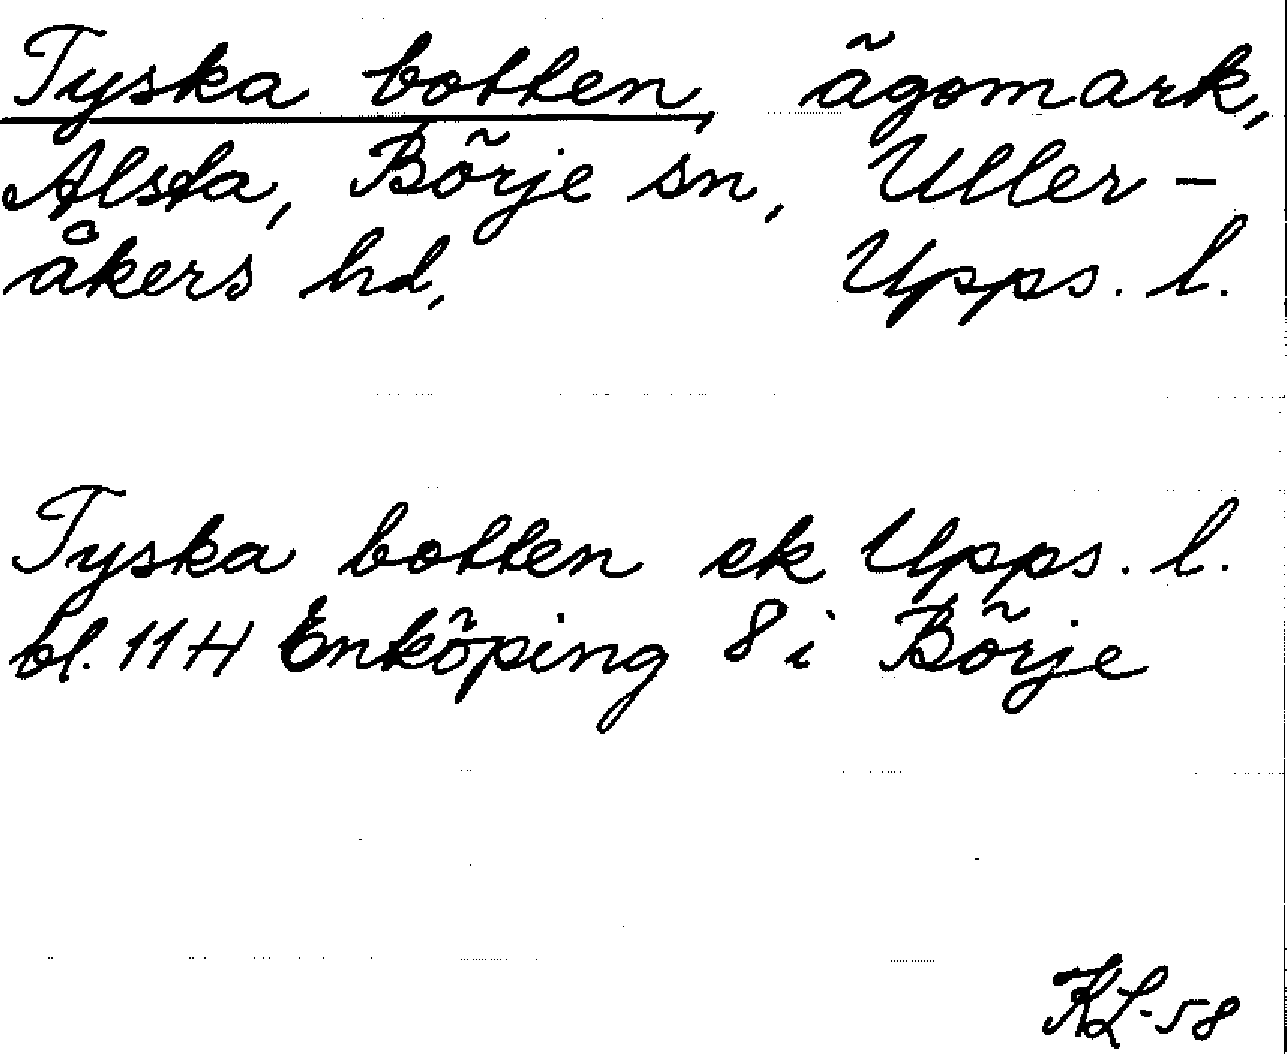 Tyska botten, ägomark,
Alsta, Börje sn, Uller-
åkers hd, Upps. l.
Tyska botten ek Upps. l.
bl. 11 H Enköping 8 i Börje
KL-58